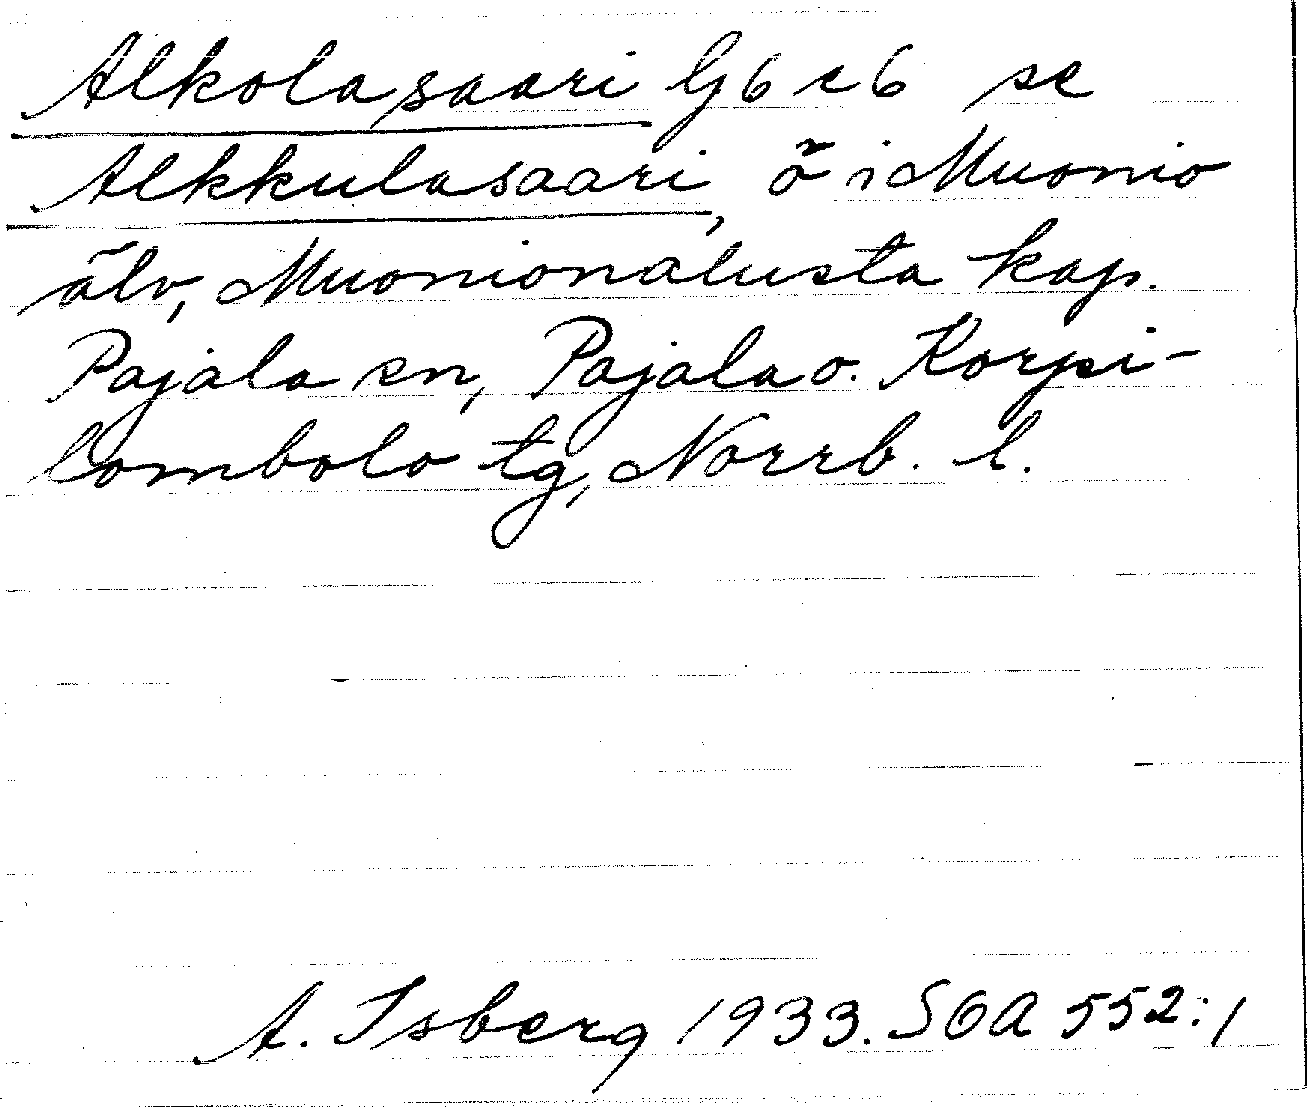 Alkolasaari Gj 6 c 6 se
Alkkulasaari, ö i Muonio
älv, Muonionalusta kap.
Pajala sn, Pajala o. Korpi-
lombolo tg, Norrb. l.
A. Isberg 1933. SOA 552:1